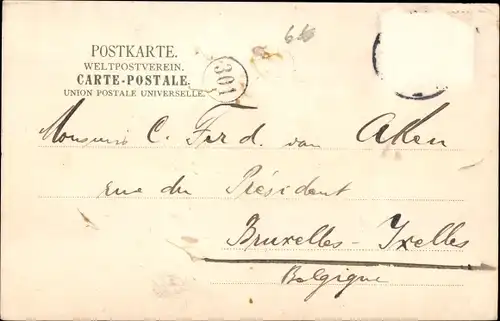 66
POSTKARTE.
WELTPOSTVEREIN.
CARTE-POSTALE.
UNION POSTALE UNIVERSELLE.
301
Monsieur C. Ferd. van Aken
rue du Président
Bruxelles - Ixelles
Belgique